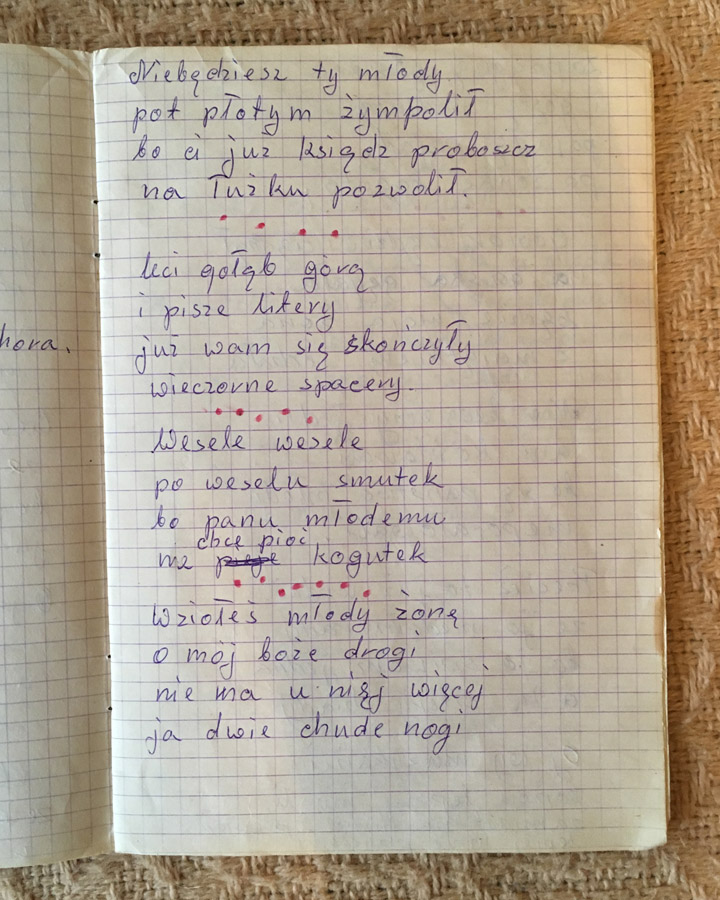 Niebędziesz ty młody
pot płotym żympolił
bo ci już ksiądz proboszcz
na łużku pozwolił.
hora.
leci gołąb górą
i pisze litery
już wam się skończyły
wieczorne spacery.
Wesele wesele
po weselu smutek
bo panu młodemu
chce pioć
nie kogutek
Wziołeś młody żonę
o mój boże drogi
nie ma u nięj więcej
ja dwie chude nogi